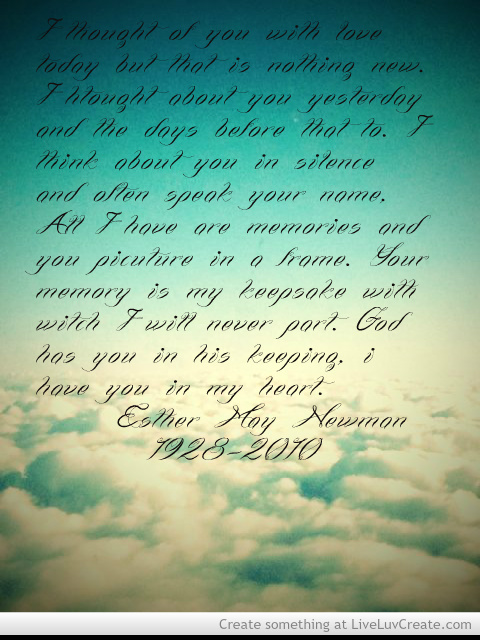 I thought of you with love
today but that is nothing new.
I htought about you yesterday
and the days before that to. I
think about you in silence
and often speak your name.
All I have are memories and
you picuture in a frame. Your
memory is my keepsake with
witch I will never part. God
has you in his keeping, i
have you in my heart.
Esther May Newman
1928-2010
Create something at LiveLuvCreate.com